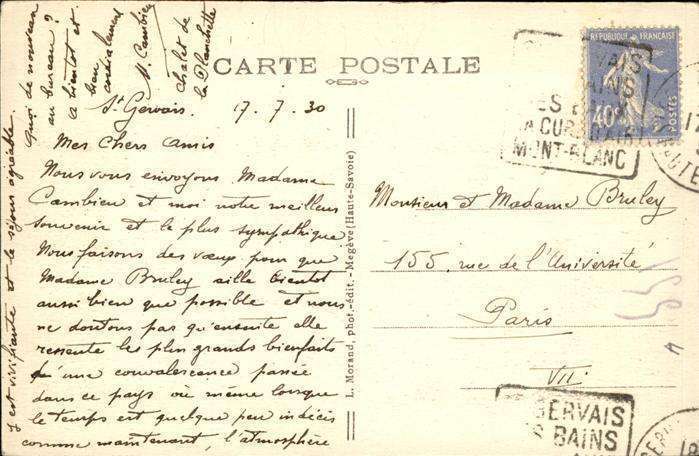 CARTE POSTALE
St Gervais. 17.7.30
Mes Chers Amis
Nous vous envoyons Madame
Cambieu et moi notre meilleur
souvenir et le plus sympathique
Nous faisons des vœux pour que
Madame Bruley aille bientôt
aussi bien que possible et nous
ne doutons pas qu'ensuite elle
ressente les plus grands bienfaits
d'une convalescence passée
dans ce pays où même lorsque
le temps est quelque peu indécis
comme maintenant, l'atmosphère
y est vivifiante et le séjour agréable
Quoi de nouveau
au bureau?
à bientôt et
bien
cordialement
Cambieu
Chalet de
la Planchette
L. Morand, phot.-édit. - Megève (Haute-Savoie)
Monsieur et Madame Bruley
155, rue de l'Université
Paris
VII
REPUBLIQUE FRANÇAISE
40c
POSTES
VAIS
BAINS
MONT-BLANC
GERVAIS
BAINS
17
18